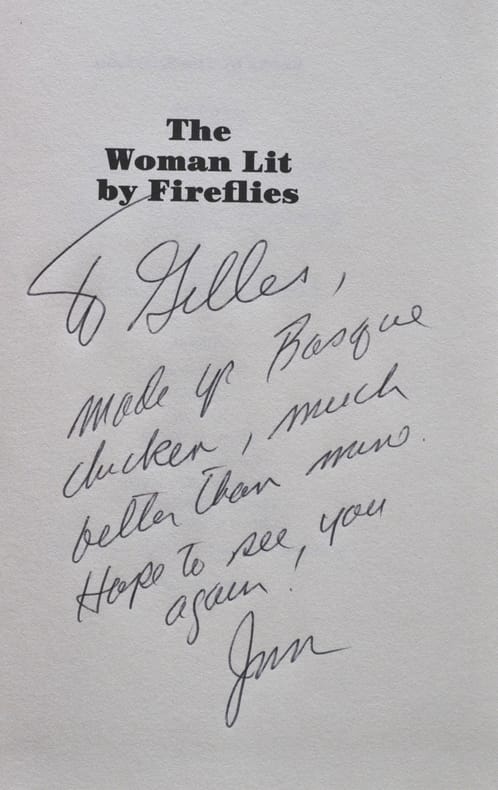 The
Woman Lit
by Fireflies
To Gilles,
made up Basque
chicken, much
better than mine.
Hope to see, you
again!
Jim